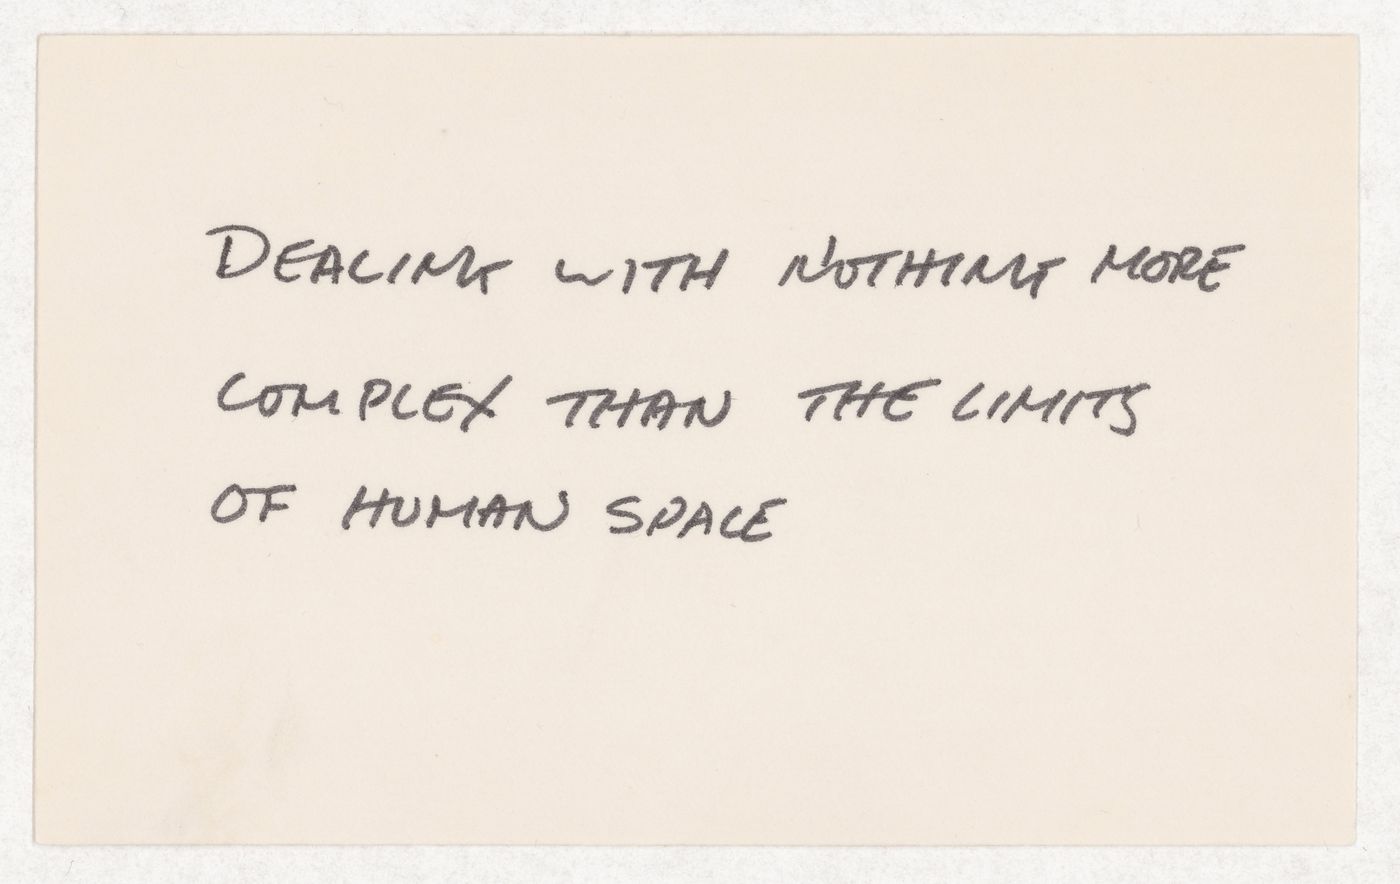 DEALING WITH NOTHING MORE
COMPLEX THAN THE LIMITS
OF HUMAN SPACE